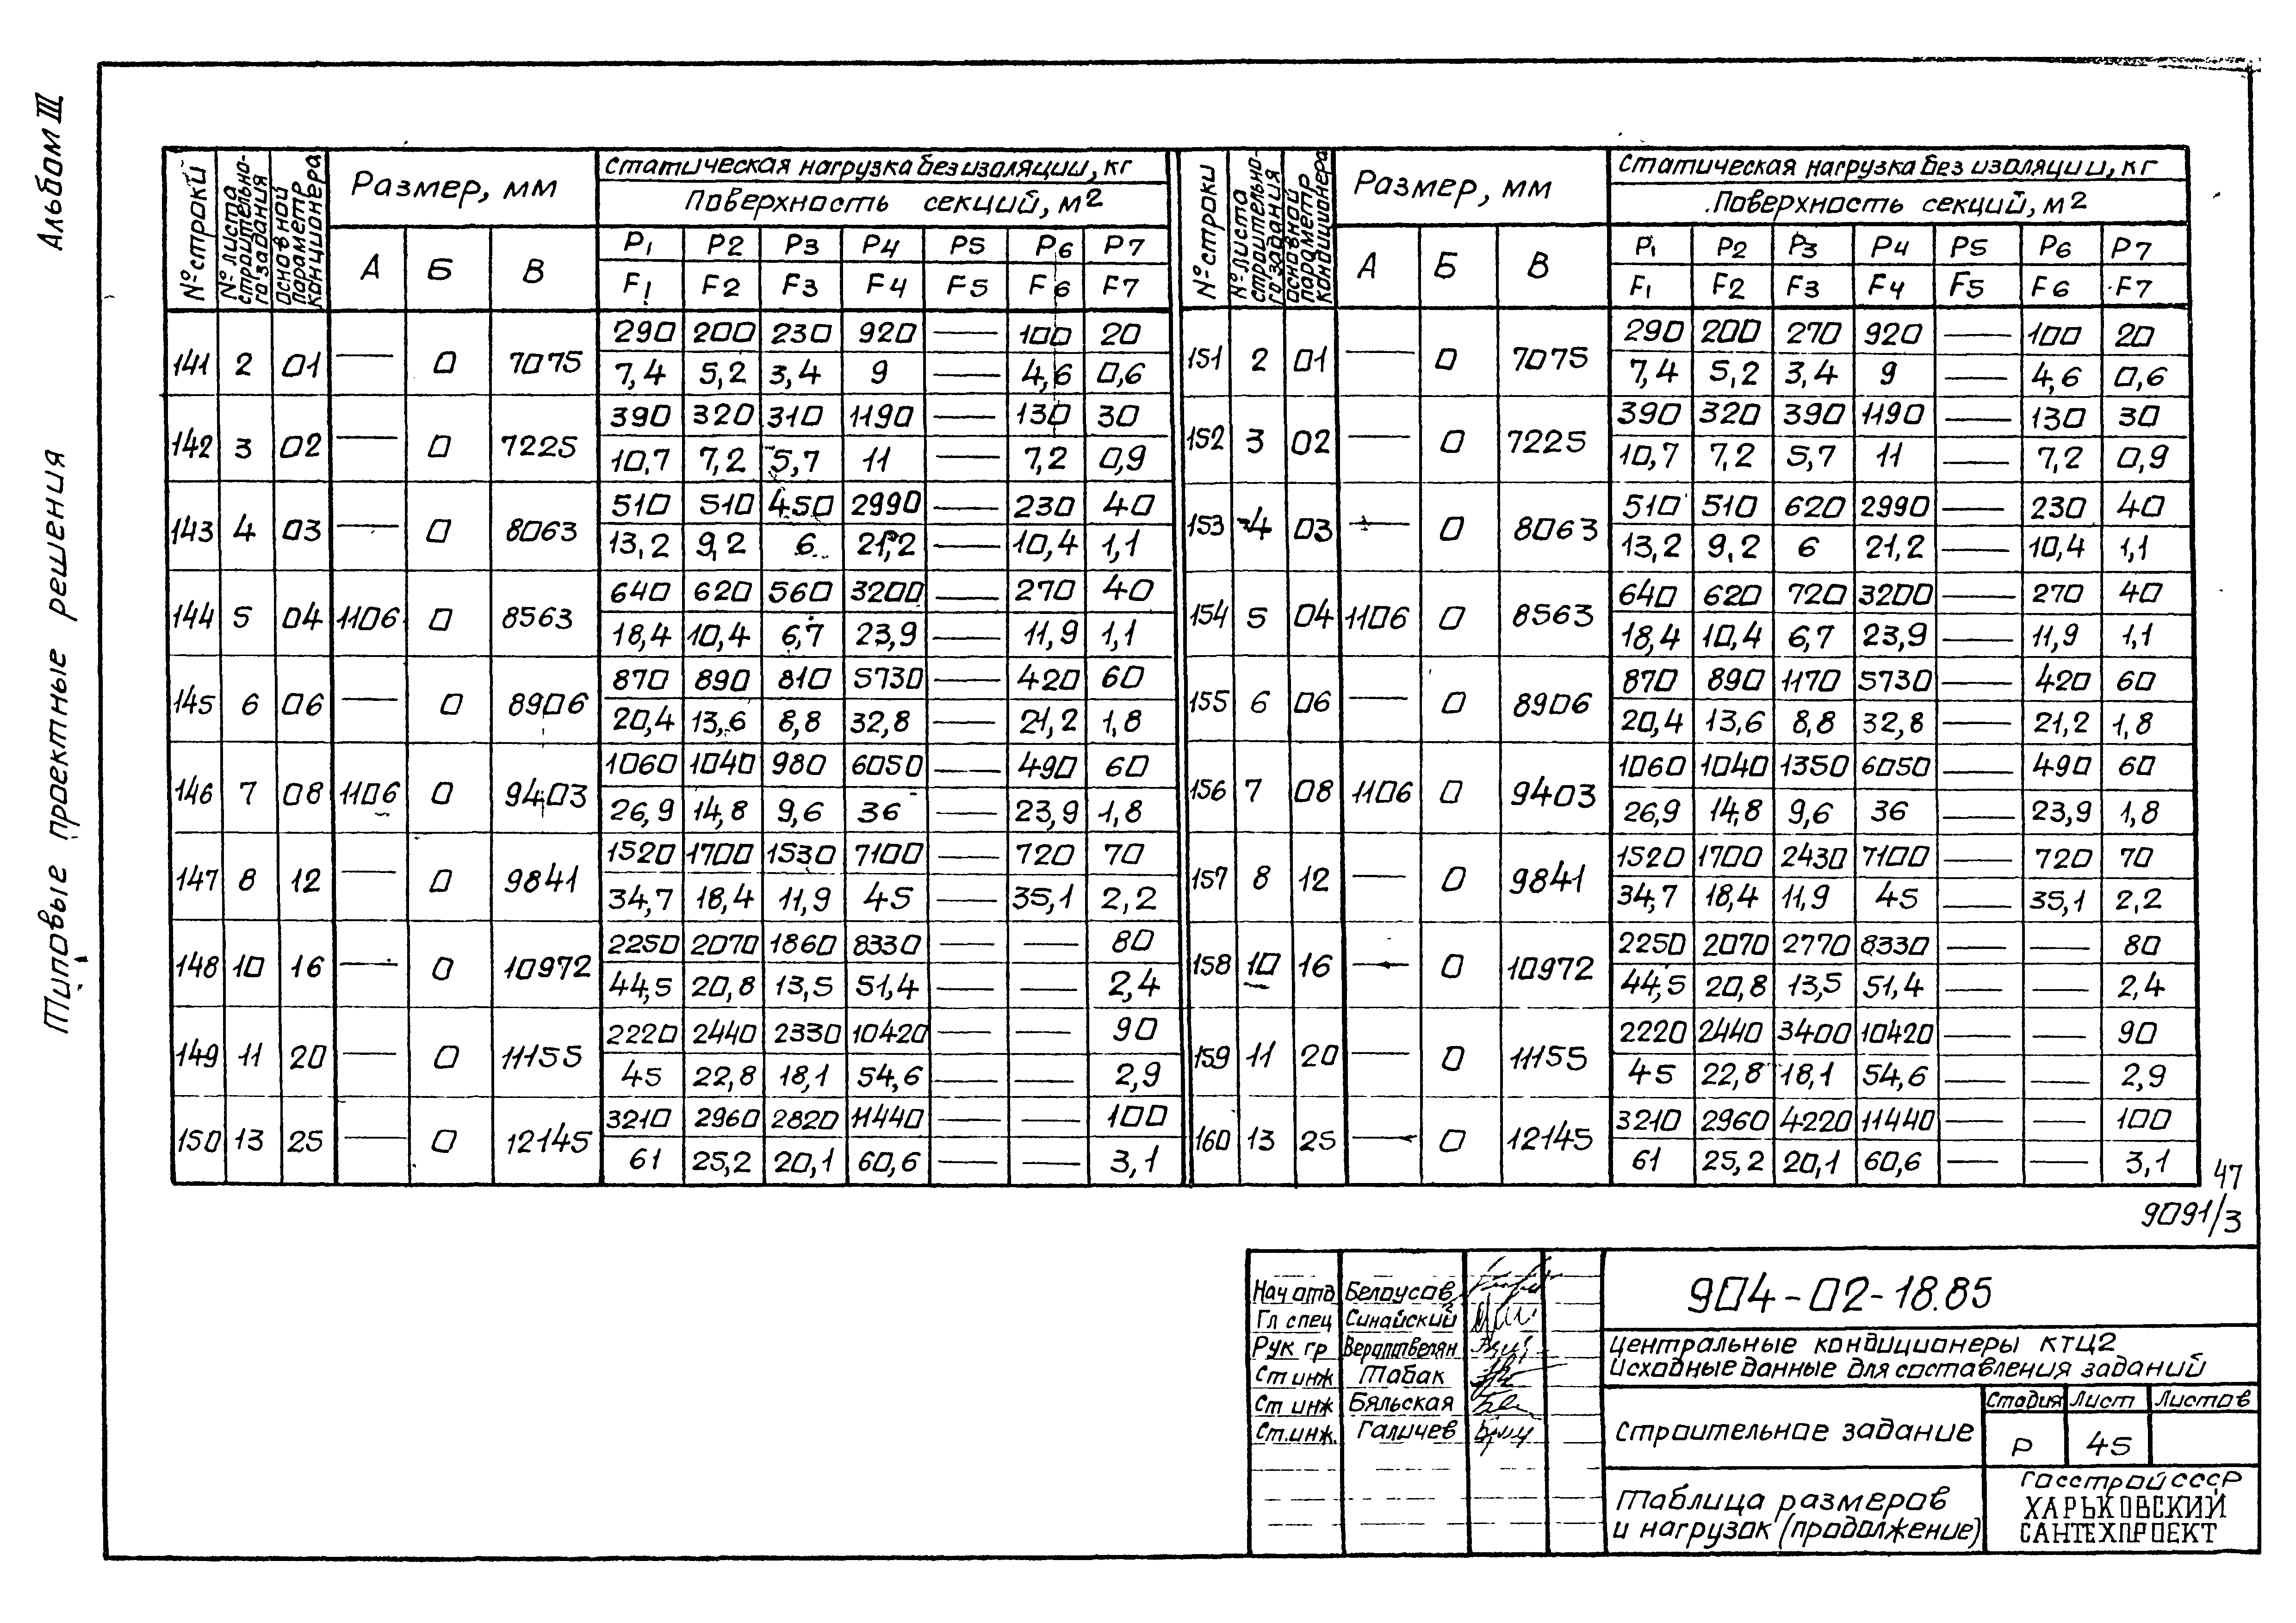 Альбом III
Типовые проектные решения
№ строки | № листа строительного задания | Основной параметр кондиционера | Размер, мм | Статическая нагрузка без изоляции, кг
Поверхность секций, м2
А | Б | В | P1 | P2 | P3 | P4 | P5 | P6 | P7
F1 | F2 | F3 | F4 | F5 | F6 | F7
141 | 2 | 01 | — | 0 | 7075 | 290 | 200 | 230 | 920 | — | 100 | 20
7,4 | 5,2 | 3,4 | 9 | — | 4,6 | 0,6
142 | 3 | 02 | — | 0 | 7225 | 390 | 320 | 310 | 1190 | — | 130 | 30
10,7 | 7,2 | 5,7 | 11 | — | 7,2 | 0,9
143 | 4 | 03 | — | 0 | 8063 | 510 | 510 | 450 | 2990 | — | 230 | 40
13,2 | 9,2 | 6 | 21,2 | — | 10,4 | 1,1
144 | 5 | 04 | 1106 | 0 | 8563 | 640 | 620 | 560 | 3200 | — | 270 | 40
18,4 | 10,4 | 6,7 | 23,9 | — | 11,9 | 1,1
145 | 6 | 06 | — | 0 | 8906 | 870 | 890 | 810 | 5730 | — | 420 | 60
20,4 | 13,6 | 8,8 | 32,8 | — | 21,2 | 1,8
146 | 7 | 08 | 1106 | 0 | 9403 | 1060 | 1040 | 980 | 6050 | — | 490 | 60
26,9 | 14,8 | 9,6 | 36 | — | 23,9 | 1,8
147 | 8 | 12 | — | 0 | 9841 | 1520 | 1700 | 1530 | 7100 | — | 720 | 70
34,7 | 18,4 | 11,9 | 45 | — | 35,1 | 2,2
148 | 10 | 16 | — | 0 | 10972 | 2250 | 2070 | 1860 | 8330 | — | — | 80
44,5 | 20,8 | 13,5 | 51,4 | — | — | 2,4
149 | 11 | 20 | — | 0 | 11155 | 2220 | 2440 | 2330 | 10420 | — | — | 90
45 | 22,8 | 18,1 | 54,6 | — | — | 2,9
150 | 13 | 25 | — | 0 | 12145 | 3210 | 2960 | 2820 | 11440 | — | — | 100
61 | 25,2 | 20,1 | 60,6 | — | — | 3,1
№ строки | № листа строительного задания | Основной параметр кондиционера | Размер, мм | Статическая нагрузка без изоляции, кг
Поверхность секций, м2
А | Б | В | P1 | P2 | P3 | P4 | P5 | P6 | P7
F1 | F2 | F3 | F4 | F5 | F6 | F7
151 | 2 | 01 | — | 0 | 7075 | 290 | 200 | 270 | 920 | — | 100 | 20
7,4 | 5,2 | 3,4 | 9 | — | 4,6 | 0,6
152 | 3 | 02 | — | 0 | 7225 | 390 | 320 | 390 | 1190 | — | 130 | 30
10,7 | 7,2 | 5,7 | 11 | — | 7,2 | 0,9
153 | 4 | 03 | — | 0 | 8063 | 510 | 510 | 620 | 2990 | — | 230 | 40
13,2 | 9,2 | 6 | 21,2 | — | 10,4 | 1,1
154 | 5 | 04 | 1106 | 0 | 8563 | 640 | 620 | 720 | 3200 | — | 270 | 40
18,4 | 10,4 | 6,7 | 23,9 | — | 11,9 | 1,1
155 | 6 | 06 | — | 0 | 8906 | 870 | 890 | 1170 | 5730 | — | 420 | 60
20,4 | 13,6 | 8,8 | 32,8 | — | 21,2 | 1,8
156 | 7 | 08 | 1106 | 0 | 9403 | 1060 | 1040 | 1350 | 6050 | — | 490 | 60
26,9 | 14,8 | 9,6 | 36 | — | 23,9 | 1,8
157 | 8 | 12 | — | 0 | 9841 | 1520 | 1700 | 2430 | 7100 | — | 720 | 70
34,7 | 18,4 | 11,9 | 45 | — | 35,1 | 2,2
158 | 10 | 16 | — | 0 | 10972 | 2250 | 2070 | 2770 | 8330 | — | — | 80
44,5 | 20,8 | 13,5 | 51,4 | — | — | 2,4
159 | 11 | 20 | — | 0 | 11155 | 2220 | 2440 | 3400 | 10420 | — | — | 90
45 | 22,8 | 18,1 | 54,6 | — | — | 2,9
160 | 13 | 25 | — | 0 | 12145 | 3210 | 2960 | 4220 | 11440 | — | — | 100
61 | 25,2 | 20,1 | 60,6 | — | — | 3,1
47
9091/3
Нач отд Белоусов
Гл спец Синайский
Рук гр
Ст инж Табак
Ст инж Бяльская
Ст.инж. Галичев
904-02-18.85
Центральные кондиционеры КТЦ2
Исходные данные для составления заданий
Строительное задание
Стадия | Лист | Листов
Р | 45
Таблица размеров
и нагрузок (продолжение)
Госстрой СССР
ХАРЬКОВСКИЙ
САНТЕХПРОЕКТ